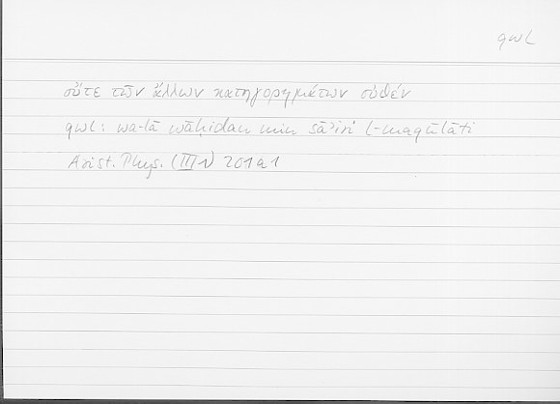 qwl
οὔτε τῶν ἄλλων κατηγορημάτων οὐθέν
qwl: wa-lā wāḥidan min sāʾiri l-maqūlāti
Arist. Phys. (III 1) 201a1